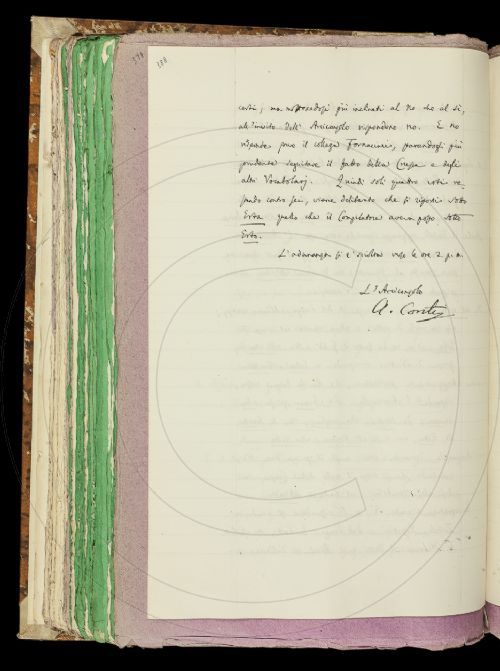 138
certi, ma mostrandosi più inclinati al no che al sì,
all'invito dell'Arciconsolo rispondono no. E no
risponde pure il collega Fornaciari, parendogli più
prudente seguitare il fatto della Crusca e degli
altri Vocabolarj. Quindi soli quattro voti re-
stando contro sei, viene deliberato che si riporti sotto
Erta quello che il Compilatore aveva posto sotto
Erto.
L'adunanza si è sciolta verso le ore 2 p. m.
L'Arciconsolo
A. Conti